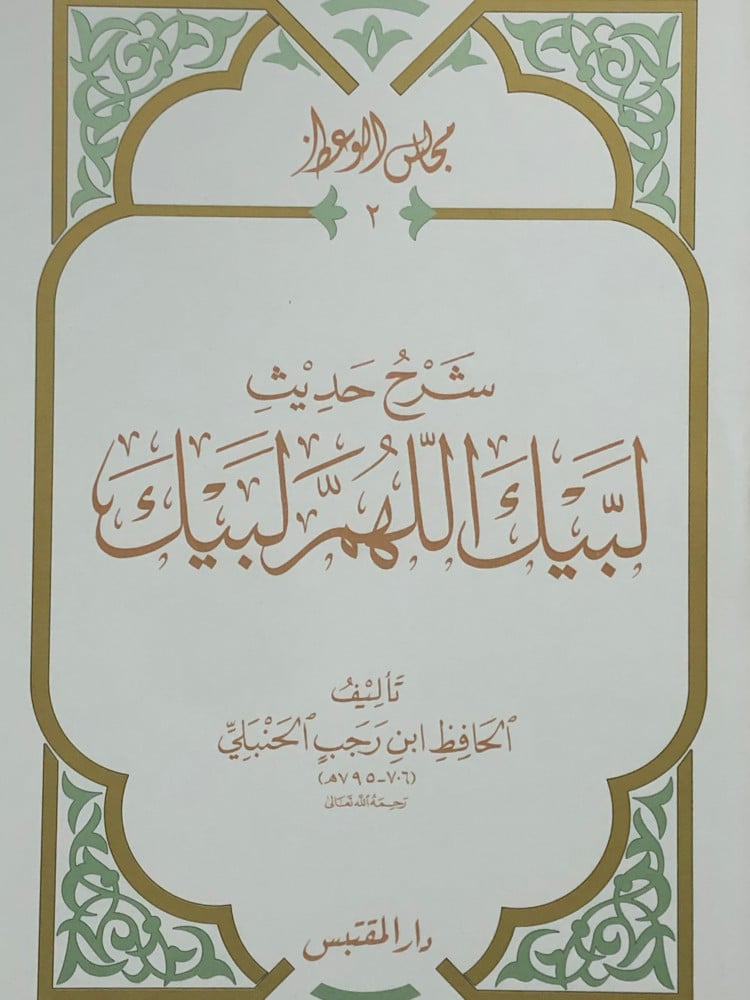 مجالس الوعظ
٢
شَرْحُ حَدِيْثِ
لَبَّيْكَ اللَّهُمَّ لَبَّيْكَ
تَأْلِيْفُ
الحَافِظِ ابْنِ رَجَبٍ الحَنْبَلِيِّ
(٧٠٦-٧٩٥هـ)
رَحِمَهُ اللهُ تَعَالَى
دار المقتبس